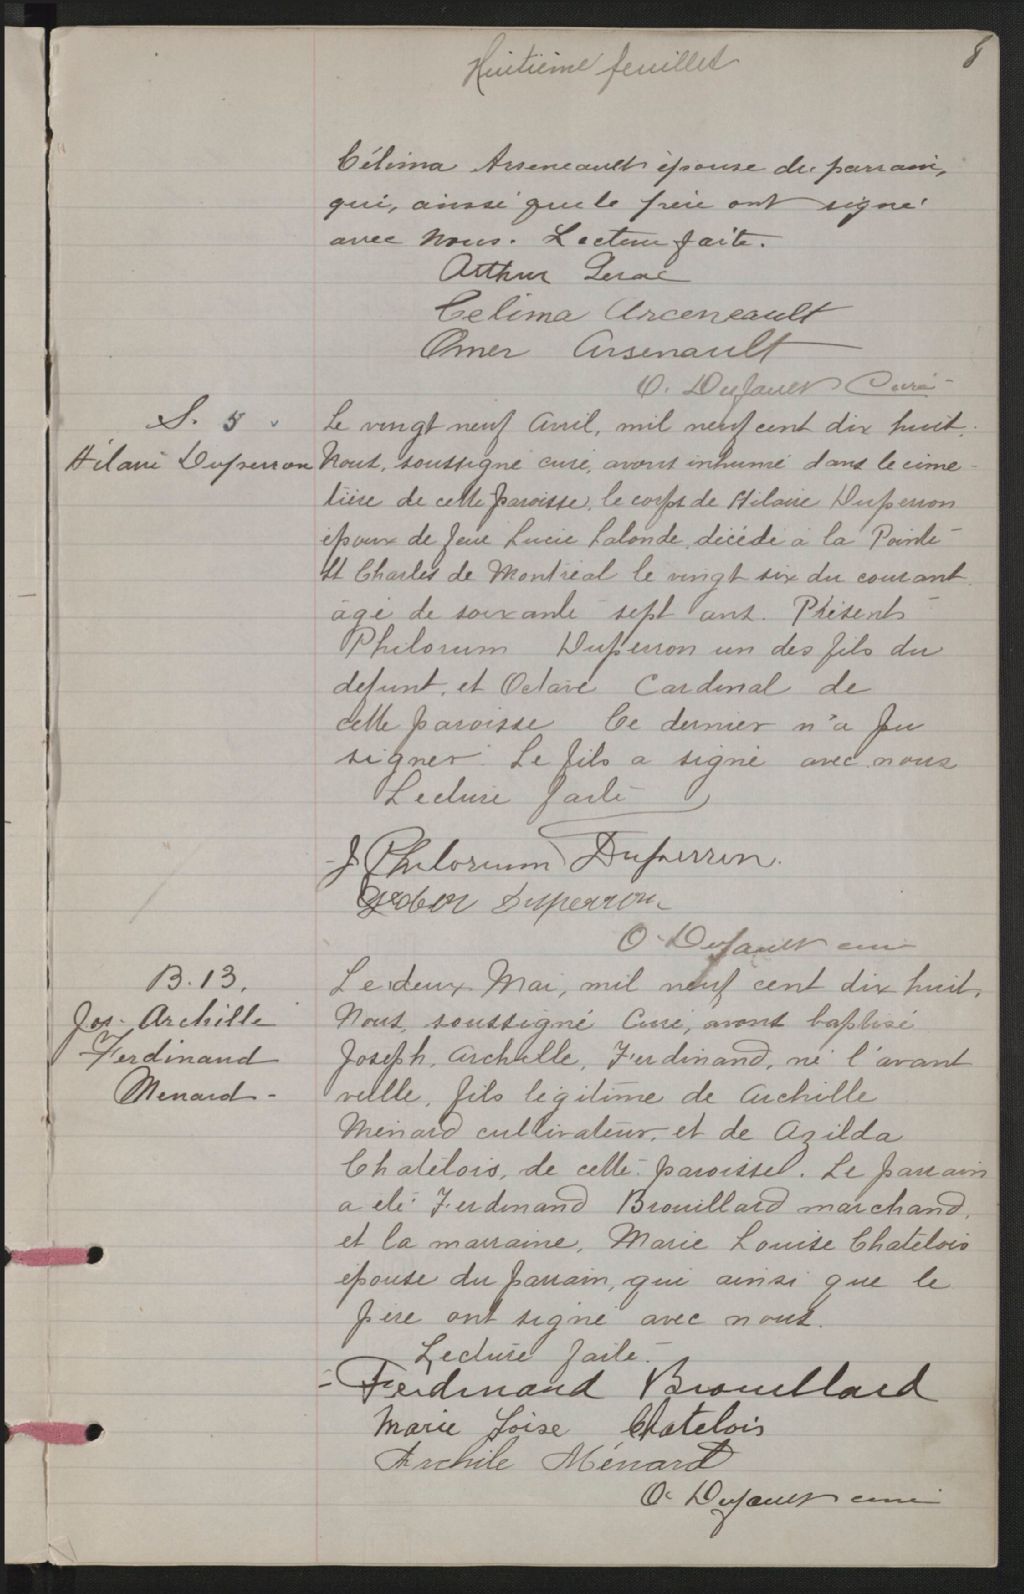 Huitième feuillet
8
Célima Arseneault épouse du parrain,
qui, ainsi que le père ont signé
avec nous. Lecture faite.
Arthur
Celima Arceneault
Omer Arsenault
O. Dufault Curé
S. 5
Hilaire Duperron
Le vingt neuf Avril, mil neuf cent dix huit,
Nous, soussigné curé, avons inhumé dans le cime-
tière de cette paroisse, le corps de Hilaire Duperron
époux de feue Lucie Lalonde, décédé à la Pointe
St Charles de Montréal le vingt six du courant
âgé de soixante sept ans. Présents
Philorum Duperron un des fils du
defunt, et Octave Cardinal de
cette paroisse Ce dernier n'a pu
signer. Le fils a signé avec nous
Lecture faite
J Philorium Duperron.
Duperron
O. Dufault curé
B. 13.
Jos. Archille
Ferdinand
Menard -
Le deux Mai, mil neuf cent dix huit,
Nous, soussigné Curé, avons baptisé
Joseph, Archille, Ferdinand, né l'avant
veille, fils légitime de Archille
Ménard cultivateur, et de Azilda
Chatelois, de cette paroisse. Le parrain
a été Ferdinand Brouillard marchand,
et la marraine, Marie Louise Chatelois
épouse du parrain, qui ainsi que le
père ont signé avec nous.
Lecture faite.
Ferdinand Brouillard
Marie Loise Chatelois
Archile Ménard
O. Dufault curé